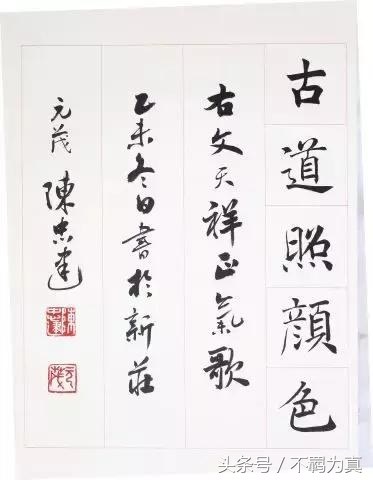 古道照顏色
右文天祥正氣歌
乙未冬日書於新莊
元茂 陳忠建
陳忠建
元茂
头条号 / 不羁为真